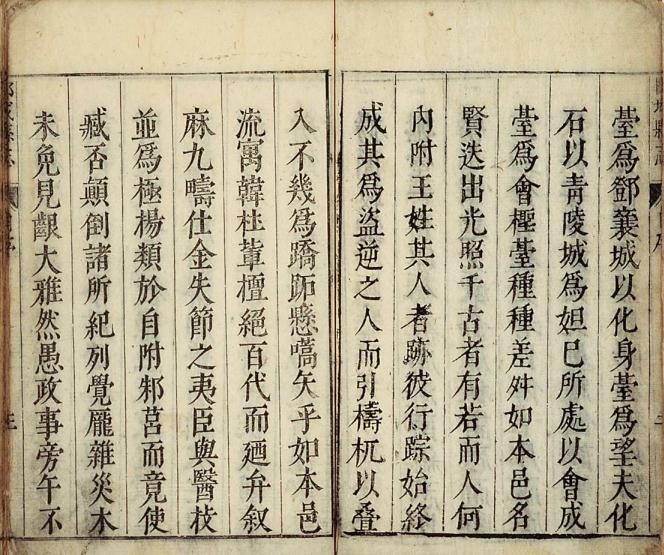 臺爲鄧襄城以化身臺爲望夫化
石以青陵城爲妲已所處以會成
臺爲會臺種種差舛如本邑名
賢迭出光照千古者有若而人何
內附王姓其人者跡彼行踪始終
成其爲盜逆之人而引檮杌以叠
入不幾爲蹻跖懸嚆矢乎如本邑
流寓韓杜輩檀絕百代而廼弁叙
麻九疇仕金失節之夷臣與醫枝
並爲極楊類於自附邾莒而竟使
臧否顛倒諸所紀列覺龐雜災木
未免見大雅然愚政事旁午不